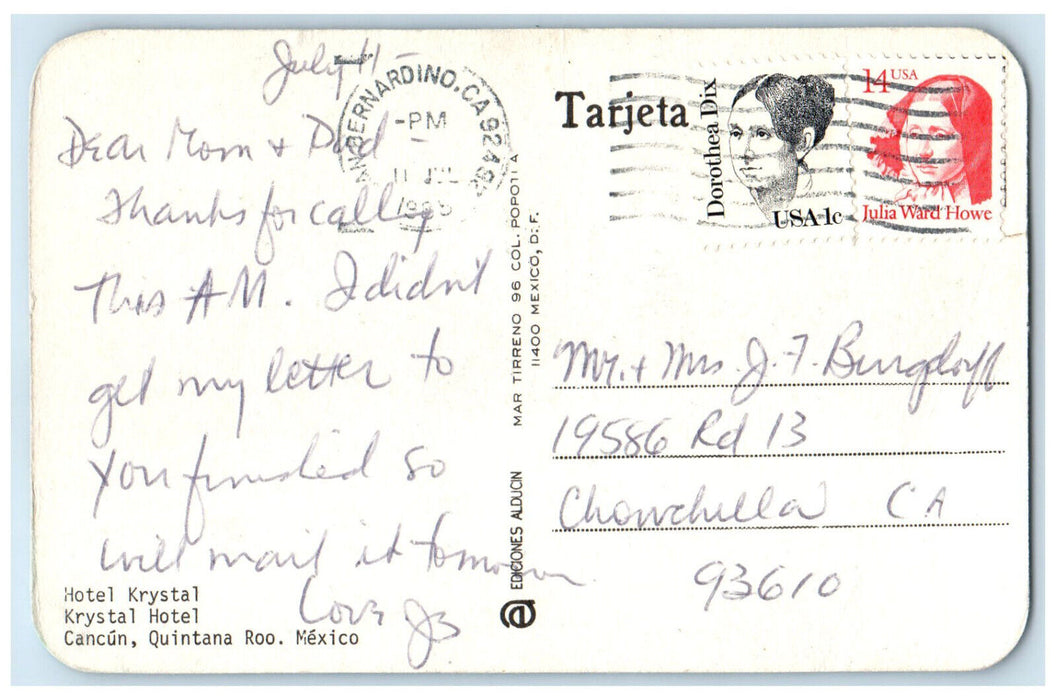 July 11
Dear Mom + Dad
Thanks for calling
This AM. I didn't
get my letter to
you finished so
will mail it tomorrow
Love
Hotel Krystal
Krystal Hotel
Cancún, Quintana Roo. México
SAN BERNARDINO, CA 924
-PM
11 JUL
EDICIONES ALDUCIN
MAR TIRRENO 96 COL. POPOTLA
11400 MEXICO, D.F.
Tarjeta
Dorothea Dix
USA 1c
14 USA
Julia Ward Howe
Mr. + Mrs J. F. Burgdorff
19586 Rd 13
Chowchilla CA
93610